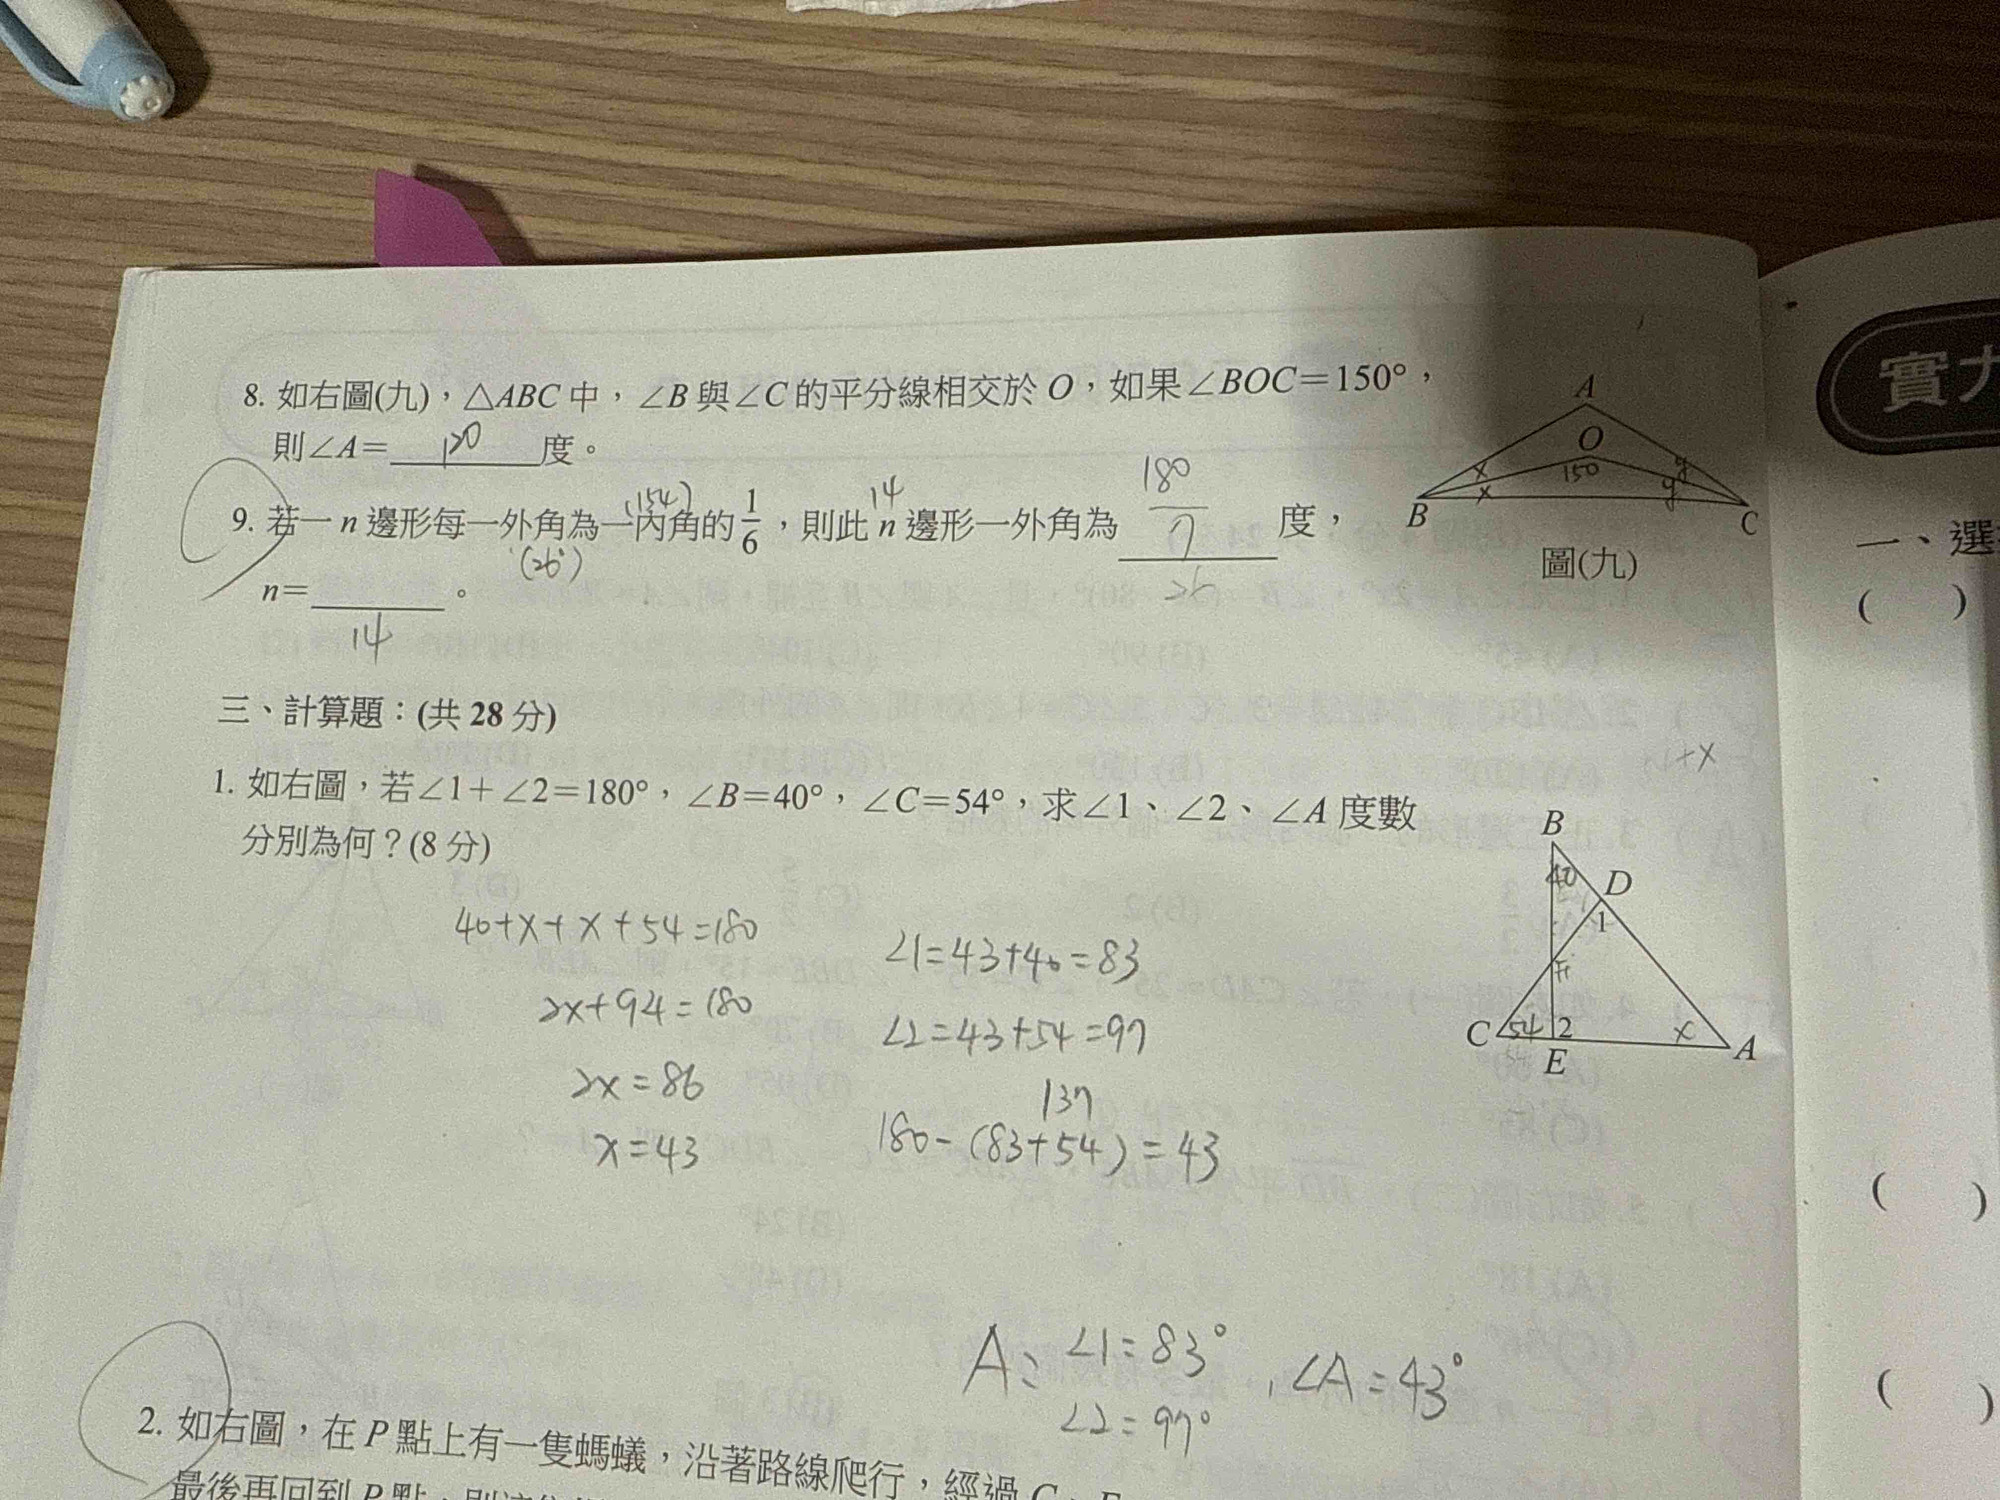 8. 如右圖(九)，△ABC 中，∠B 與∠C 的平分線相交於 O，如果∠BOC＝150°，
則∠A＝ 120 度。
A
O
x
x
150
y
y
B
C
圖(九)
9. 若一 n 邊形每一外角為一內角的 1/6，則此 n 邊形一外角為 180/7 度，
(154)
14
(26°)
26
n＝ 14 。
三、計算題：(共 28 分)
1. 如右圖，若∠1＋∠2＝180°，∠B＝40°，∠C＝54°，求∠1、∠2、∠A 度數
分別為何？(8 分)
B
40
D
1
F
C
54
2
x
A
E
40+x+x+54=180
2x+94=180
2x=86
x=43
∠1=43+40=83
∠2=43+54=97
137
180-(83+54)=43
A: ∠1=83°
∠2=97°
, ∠A=43°
2. 如右圖，在 P 點上有一隻螞蟻，沿著路線爬行，經過 C、E
最後再回到 P 點，則
實力
一、選
(   )
(   )
(   )